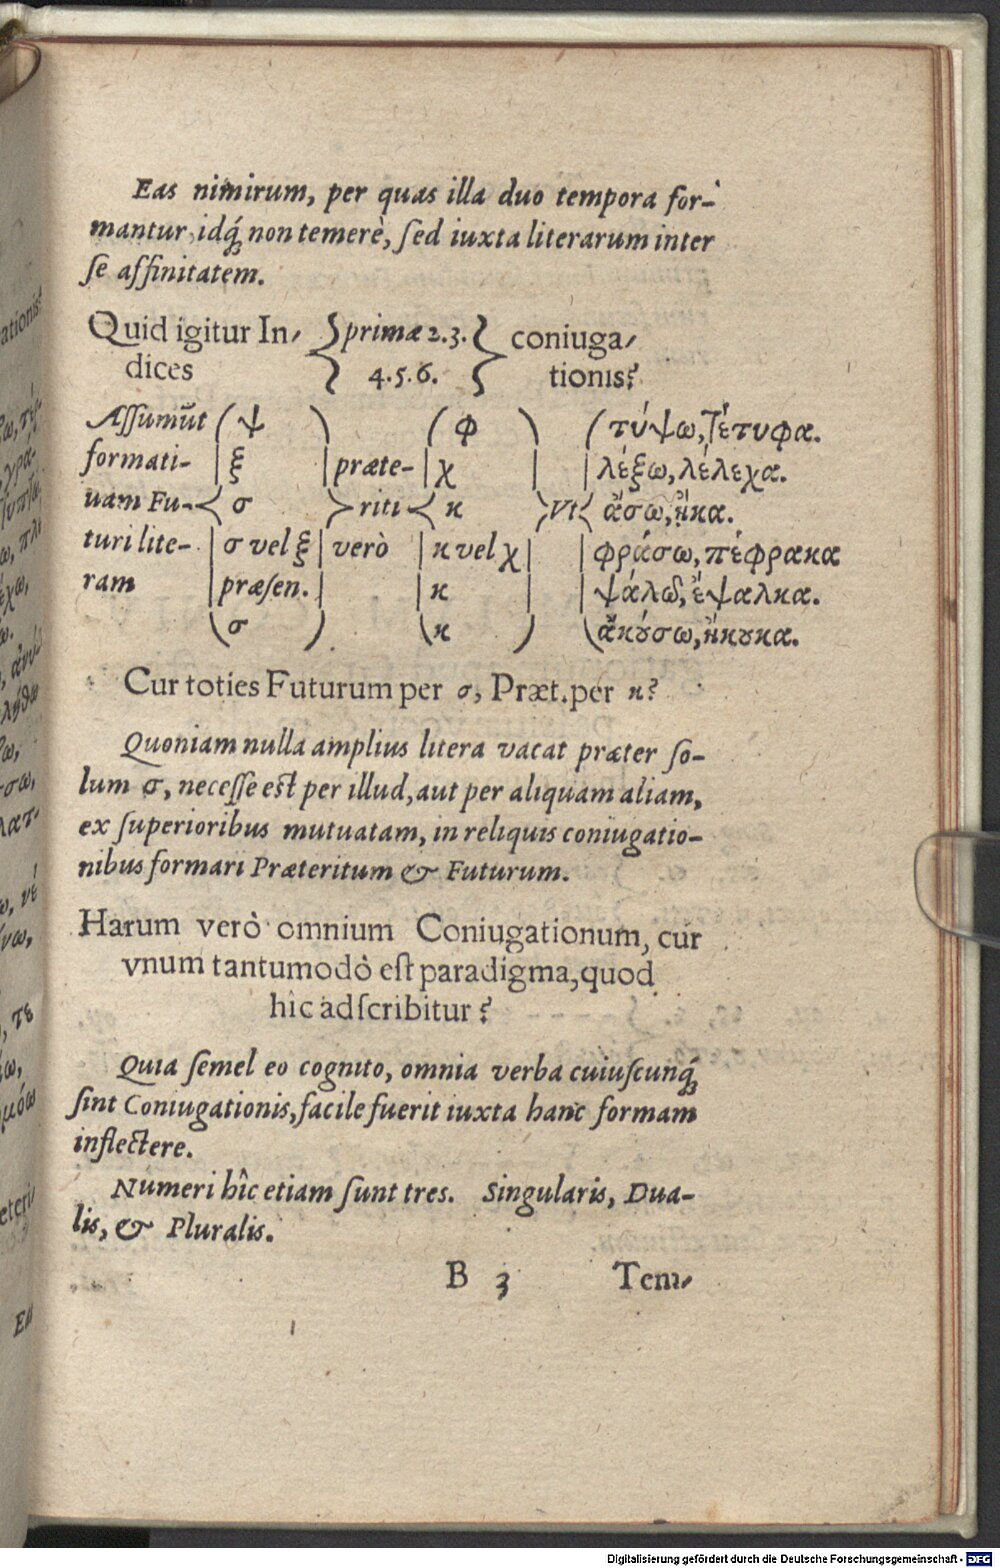 Eas nimirum, per quas illa duo tempora for-
mantur, idq́ꝫ non temerè, ſed iuxta literarum inter
ſe aſſinitatem.
Quid igitur In- primæ 2.3. coniuga-
dices 4.5.6. tionis?
Aſſumūt ψ φ τύψω, τέτυφα.
formati- ξ præte- χ λέξω, λέλεχα.
uam Fu- σ riti κ Vt ἄσω, ἧκα.
turi lite- σ vel ξ verò κ vel χ φράσω, πέφρακα
ram præſen. κ ψάλῶ, ἔψαλκα.
σ κ ἄκȣ́σω, ἤκȣκα.
Cur toties Futurum per σ, Præt. per κ?
Quoniam nulla amplius litera vacat præter ſo-
lum σ, neceſſe eſt per illud, aut per aliquam aliam,
ex ſuperioribus mutuatam, in reliquis coniugatio-
nibus formari Præteritum & Futurum.
Harum verò omnium Coniugationum, cur
vnum tantumodò eſt paradigma, quod
hîc adſcribitur?
Quia ſemel eo cognito, omnia verba cuiuſcunq́ꝫ
ſint Coniugationis, facile fuerit iuxta hanc formam
inflectere.
Numeri hîc etiam ſunt tres. Singularis, Dua-
lis, & Pluralis.
B 3 Tem-
Digitalisierung gefördert durch die Deutsche Forschungsgemeinschaft - DFG